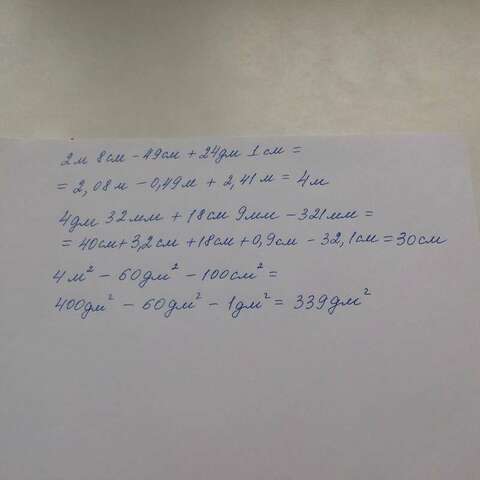 2м 8см - 49см + 24дм 1см =
= 2,08м - 0,49м + 2,41м = 4м
4дм 32мм + 18см 9мм - 321мм =
= 40см + 3,2см + 18см + 0,9см - 32,1см = 30см
4м² - 60дм² - 100см² =
400дм² - 60дм² - 1дм² = 339дм²